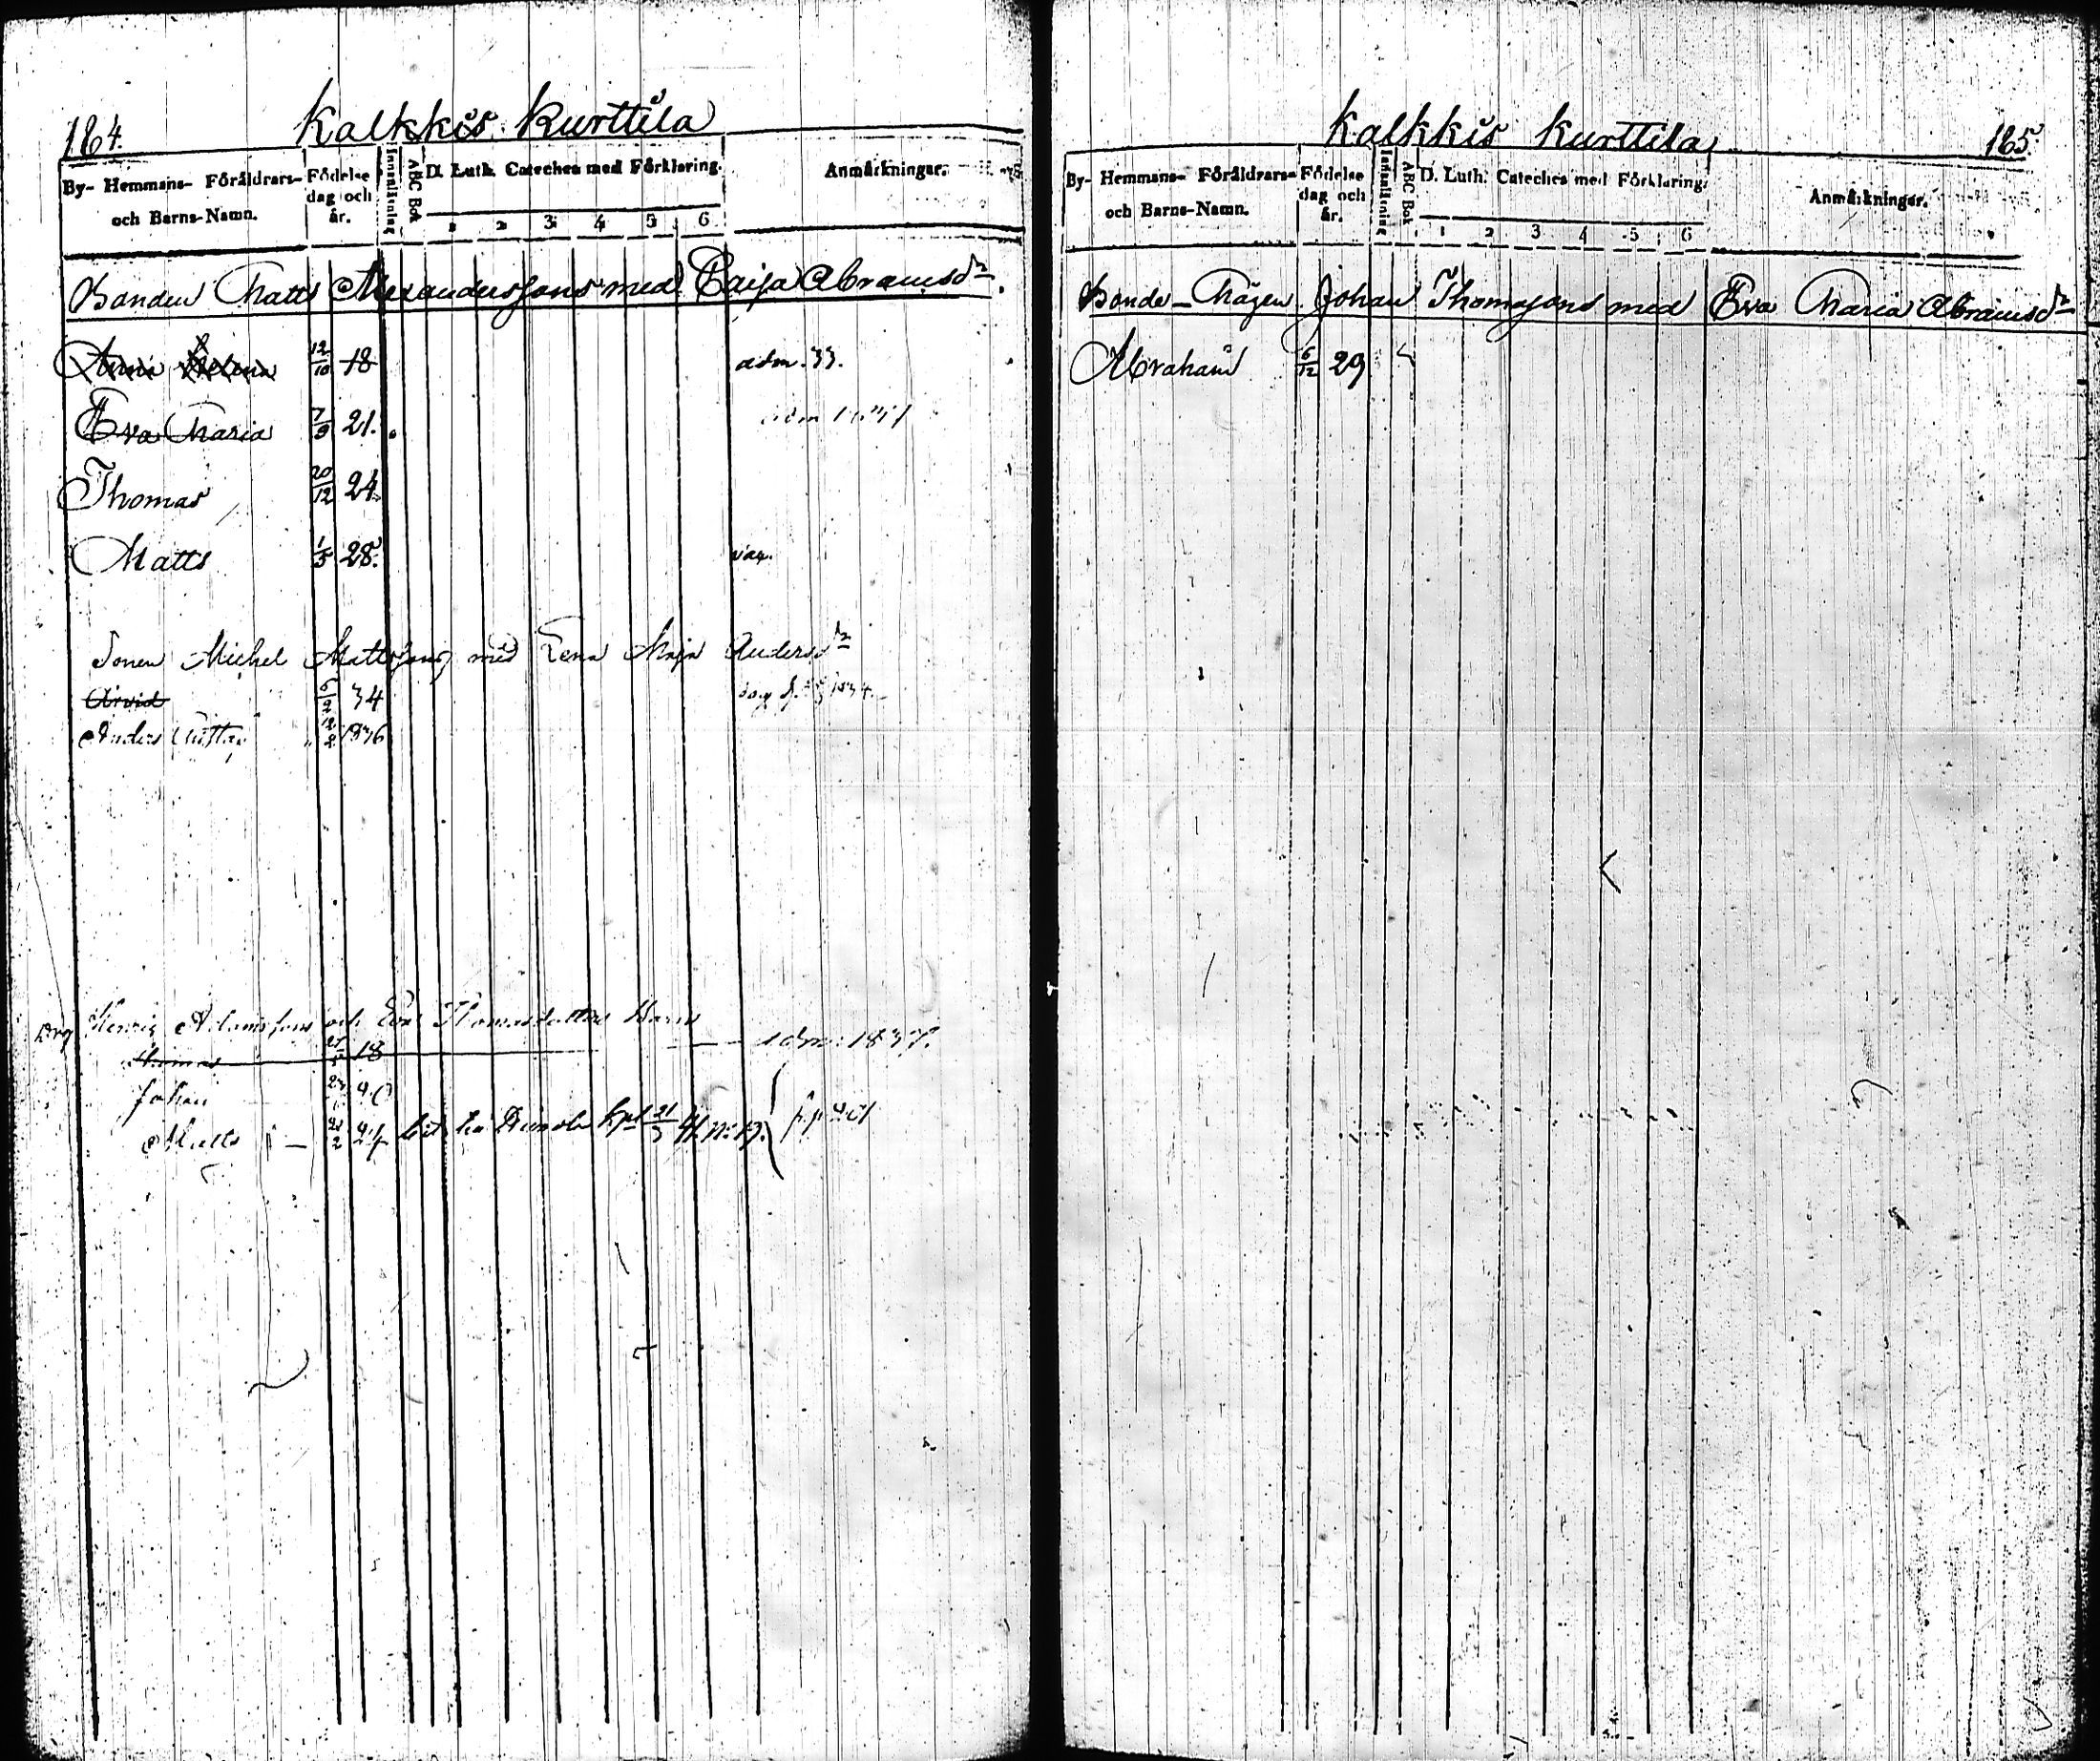 164. Kalkkis Kurttila
By- Hemmans- Föräldrars- och Barns-Namn. Födelse dag och år. Innanläsning ABC Bok D. Luth. Cateches med Förklaring. 1 2 3 4 5 6 Anmärkningar.
Bonden Matts Alexanderssons med Caisa Abramsdr.
Anna Helena 12/10 18 adm. 33.
Eva Maria 7/9 21. adm 1837
Thomas 20/12 24.
Matts 1/5 28. vac.
Sonen Michel Mattssons med Lena Maja Andersdr
Arvid 6/2 34 1834.
Anders Gustav 12/2 1836
Henric Adamssons och Eva Thomasdotters Barn
Thomas 18 adm. 1837.
Johan
Matts 24
Kalkkis Kurttila 165.
By- Hemmans- Föräldrars- och Barns-Namn. Födelse dag och år. Innanläsning ABC Bok D. Luth. Cateches med Förklaring. 1 2 3 4 5 6 Anmärkningar.
Bonde-Mågen Johan Thomassons med Eva Maria Abramsdr
Abraham 6/12 29